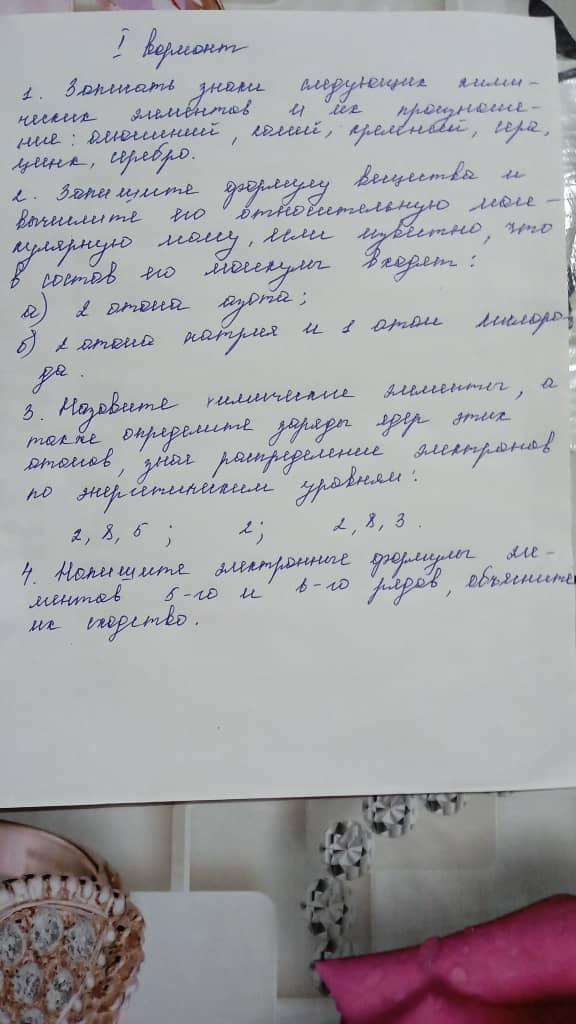 I вариант
1. Записать знаки следующих хими-
ческих элементов и их произноше-
ние: алюминий, калий, кремний, сера,
цинк, серебро.
2. Запишите формулу вещества и
вычислите его относительную моле-
кулярную массу, если известно, что
в состав его молекулы входят:
а) 2 атома азота;
б) 2 атома натрия и 1 атом кислоро-
да.
3. Назовите химические элементы, а
также определите заряды ядер этих
атомов, зная распределение электронов
по энергетическим уровням:
2, 8, 5 ; 2; 2, 8, 3.
4. Напишите электронные формулы эле-
ментов 5-го и 6-го рядов, объясните
их сходство.